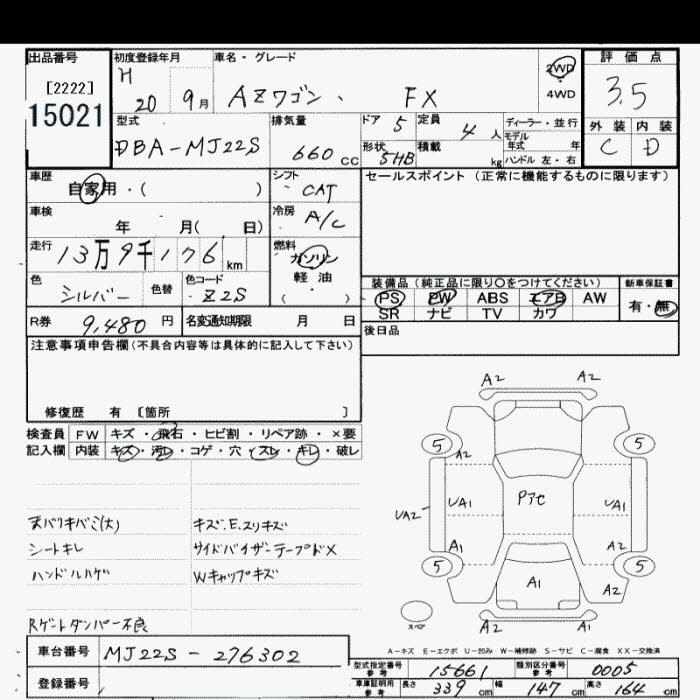 出品番号 初度登録年月 車名・グレード 評価点
[2222] H 2WD
15021 20 9月 AZワゴン、 FX 4WD 3.5
型式 排気量 ドア 5 定員 4人 ディーラー・並行 外装 内装
DBA-MJ22S 660 CC 形状 5HB 積載 kg モデル年式 年 C D
ハンドル 左・右
車歴 自家用・( ) シフト CAT セールスポイント (正常に機能するものに限ります)
車検 年 月( 日) 冷房 A/C
走行 13万9千176km 燃料 ガソリン
軽油
( )
色 シルバー 色替 色コード Z2S
装備品 (純正品に限り○をつけてください) 新車保証書
PS PW ABS エアB AW 有・無
SR ナビ TV カワ
R券 9,480円 名変通知期限 月 日 後日品
注意事項申告欄(不具合内容等は具体的に記入して下さい)
修復歴 有 〔箇所 〕
検査員 FW キズ・飛石・ヒビ割・リペア跡・×要
記入欄 内装 キズ・汚レ・コゲ・穴・スレ・キレ・破レ
天バリキバミ(大) キズ.E.スリキズ
シートキレ サイドバイザーテープドメ
ハンドルハゲ Wキャップキズ
Rゲートダンパー不良
A2 A2
5 5
A2
UA2 UA1 Pアセ UA1
A1 A2
5 5
A1 A2
スペア A2 A1
A-キズ E-エクボ U-凹み W-補修跡 S-サビ C-腐食 XX-交換済
車台番号 MJ22S-276302
登録番号
型式指定番号 参考 15661 類別区分番号 参考 0005
車庫証明用 参考 長さ 339cm 幅 147cm 高さ 164cm